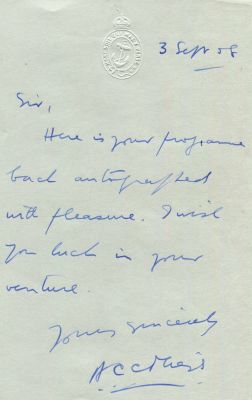 3 Sept 58
Sir,
Here is your programme
back autographed
with pleasure. I wish
you luck in your
venture.
Yours sincerely